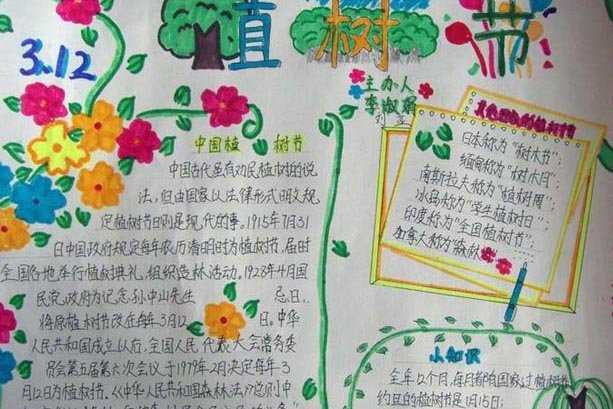 3.12
植
树
节
主办人
李淑娟
中国植 树节
中国古代虽有劝民植树的说
法,但由国家以法律形式明文规
定植树节日则是现代的事。1915年7月31
日中国政府规定每年农历清明时为植树节,届时
全国各地举行植树典礼,组织造林活动。1928年4月国
民党政府为纪念孙中山先生 忌日,
将原植树节改在每年3月12 日。中华
人民共和国成立以后,全国人民代表大会常务委
员会第五届第六次会议于1979年2月决定每年3
月12日为植树节。《中华人民共和国森林法》总则中
其它国家的植树节
日本称为“树木节”;
缅甸称为“树木月”;
南斯拉夫称为“植树周”;
冰岛称为“学生植树日”;
印度称为“全国植树节”;
加拿大称为“森林
小知识
全年12个月,每月都有国家过植树节
约旦的植树日是1月15日;